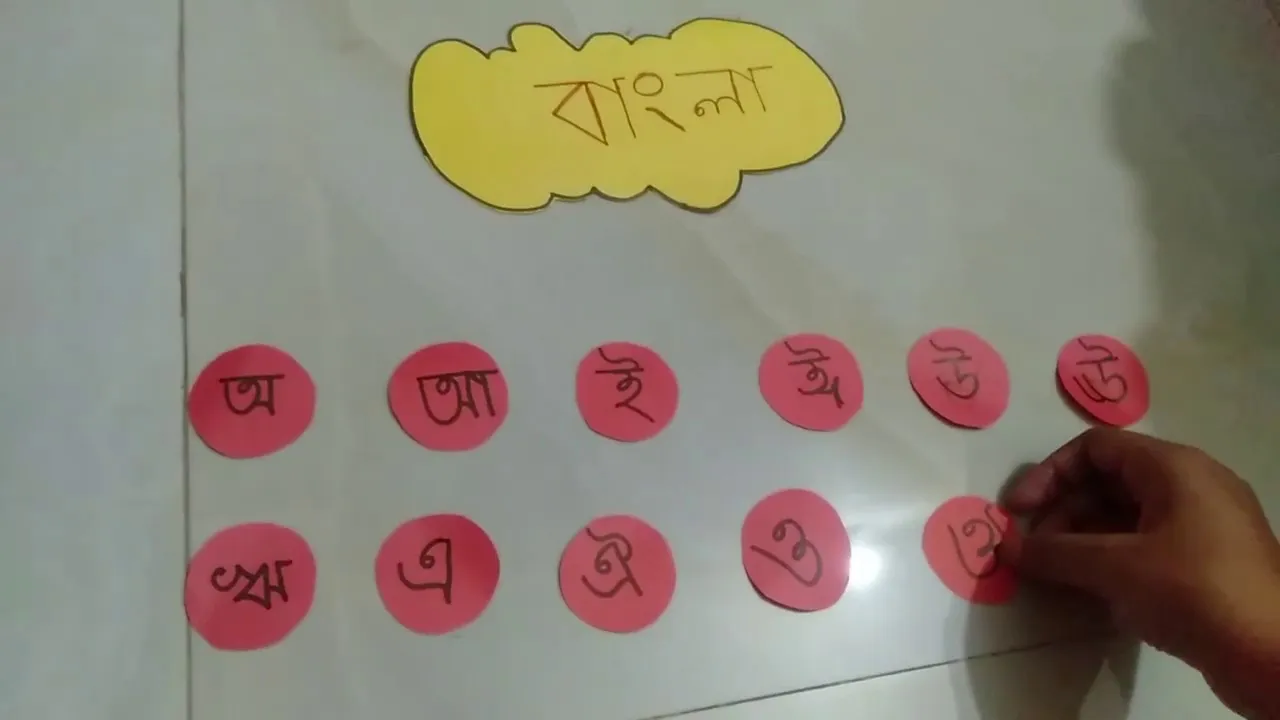 বাংলা
অ আ ই ঈ উ ঊ
ঋ এ ঐ ও